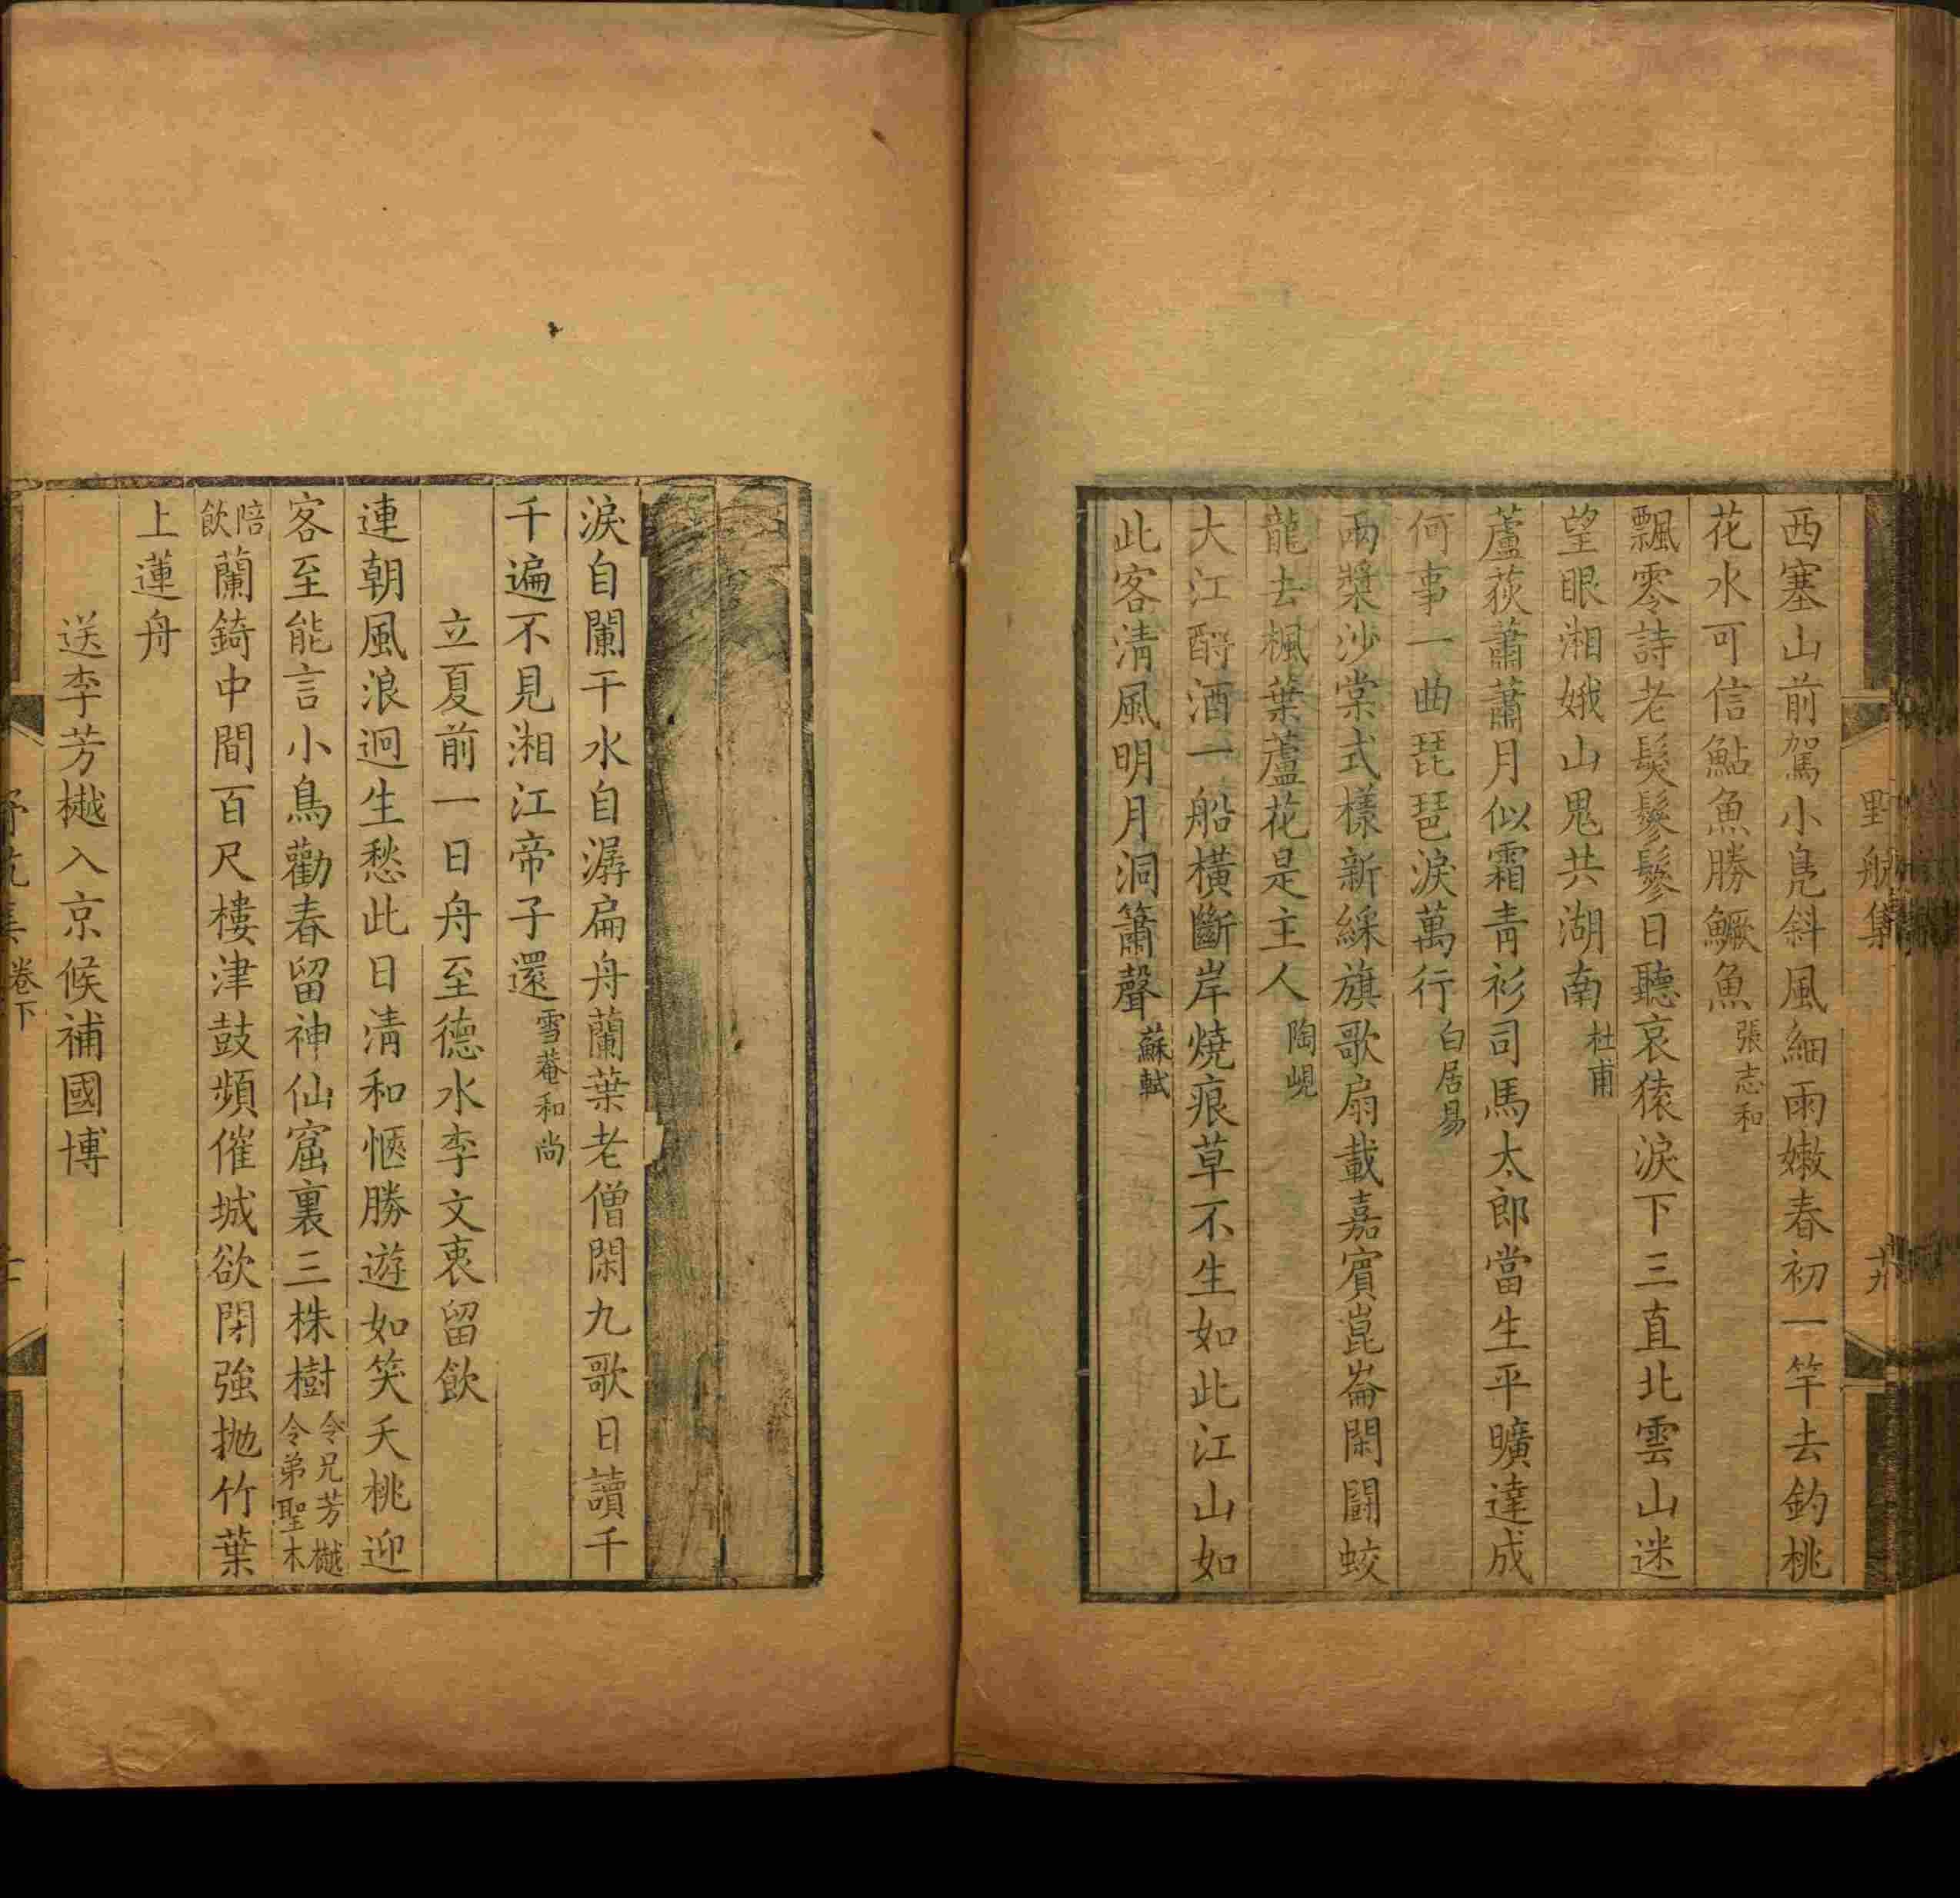 野航集
十九
西塞山前駕小鳧斜風細雨嫩春初一竿去釣桃
花水可信鮎魚勝鱖魚張志和
飄零詩老髮鬖鬖日聽哀猿淚下三直北雲山迷
望眼湘娥山鬼共湖南杜甫
蘆荻蕭蕭月似霜青衫司馬太郎當生平曠達成
何事一曲琵琶淚萬行白居易
兩槳沙棠式樣新綵旗歌扇載嘉賓崑崙閑鬪蛟
龍去楓葉蘆花是主人陶峴
大江酹酒一船橫斷岸燒痕草不生如此江山如
此客淸風明月洞簫聲蘇軾
淚自闌干水自潺扁舟蘭葉老僧閑九歌日讀千
千遍不見湘江帝子還雪菴和尚
立夏前一日舟至德水李文衷留飲
連朝風浪迥生愁此日淸和愜勝遊如笑夭桃迎
客至能言小鳥勸春留神仙窟裏三株樹令兄芳樾
令弟聖木
陪
飲蘭錡中間百尺樓津鼓頻催城欲閉強拋竹葉
上蓮舟
送李芳樾入京候補國博
卷下